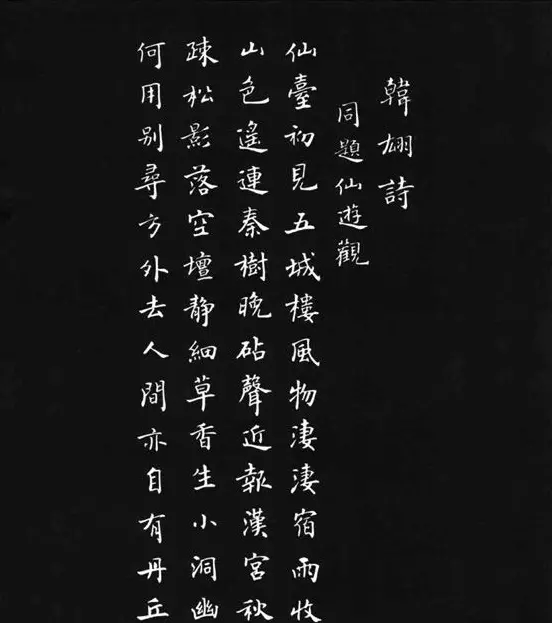 韓翃詩
同題仙遊觀
仙臺初見五城樓風物淒淒宿雨收
山色遙連秦樹晚砧聲近報漢宮秋
疎松影落空壇静細草香生小洞幽
何用别尋方外去人間亦自有丹丘